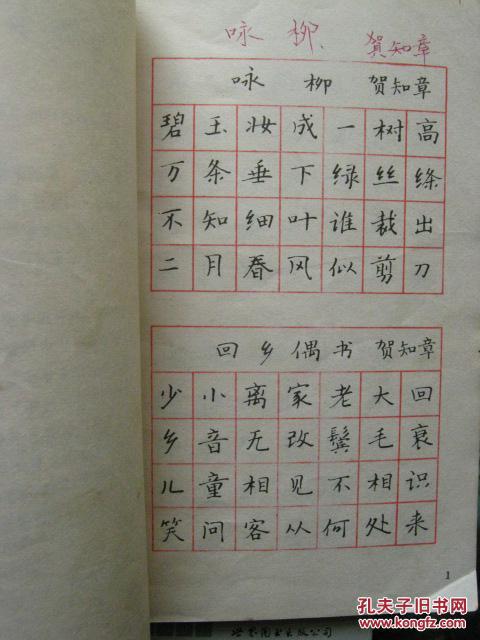 咏柳 贺知章
咏柳 贺知章
碧玉妆成一树高
万条垂下绿丝绦
不知细叶谁裁出
二月春风似剪刀
回乡偶书 贺知章
少小离家老大回
乡音无改鬓毛衰
儿童相见不相识
笑问客从何处来
1
世界图书出版公司
孔夫子旧书网